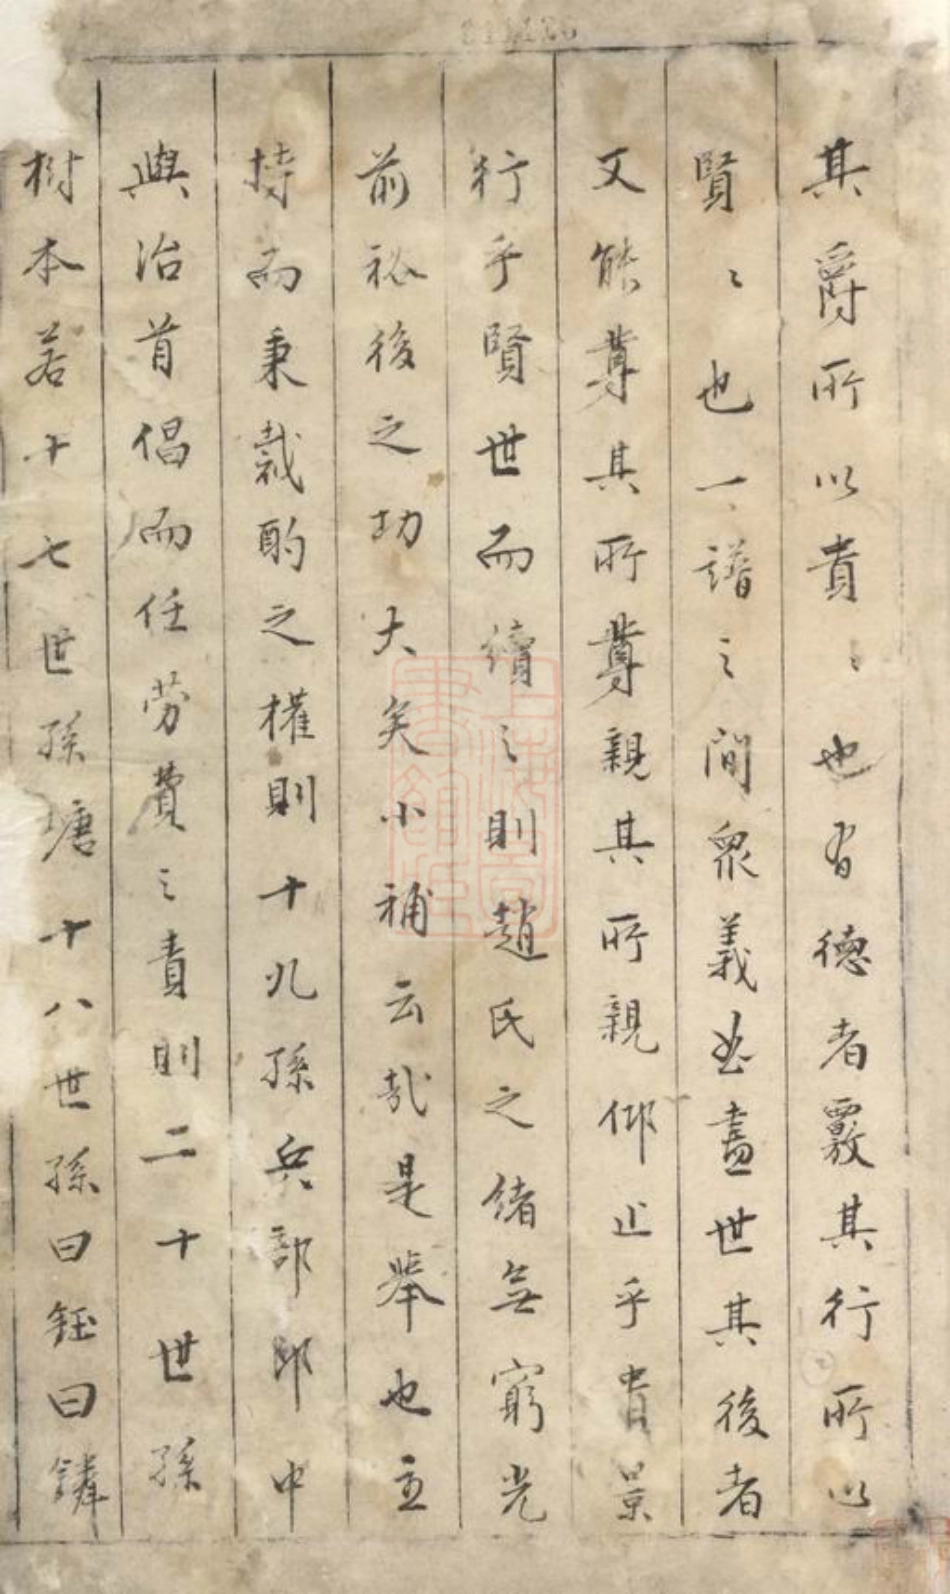 其爵所以貴〻也有德者覈其行所以
賢〻也一譜之間衆義悉盡世其後者
又能尊其所尊親其所親仰止乎貴景
行乎賢世而續之則趙氏之緒無窮光
前裕後之功大矣小補云哉是舉也主
持而秉裁酌之權則十九孫兵部郎中
與治首倡而任勞費之責則二十世孫
樹本若十七世孫塘十八世孫曰鈺曰鏻
上海圖書館藏